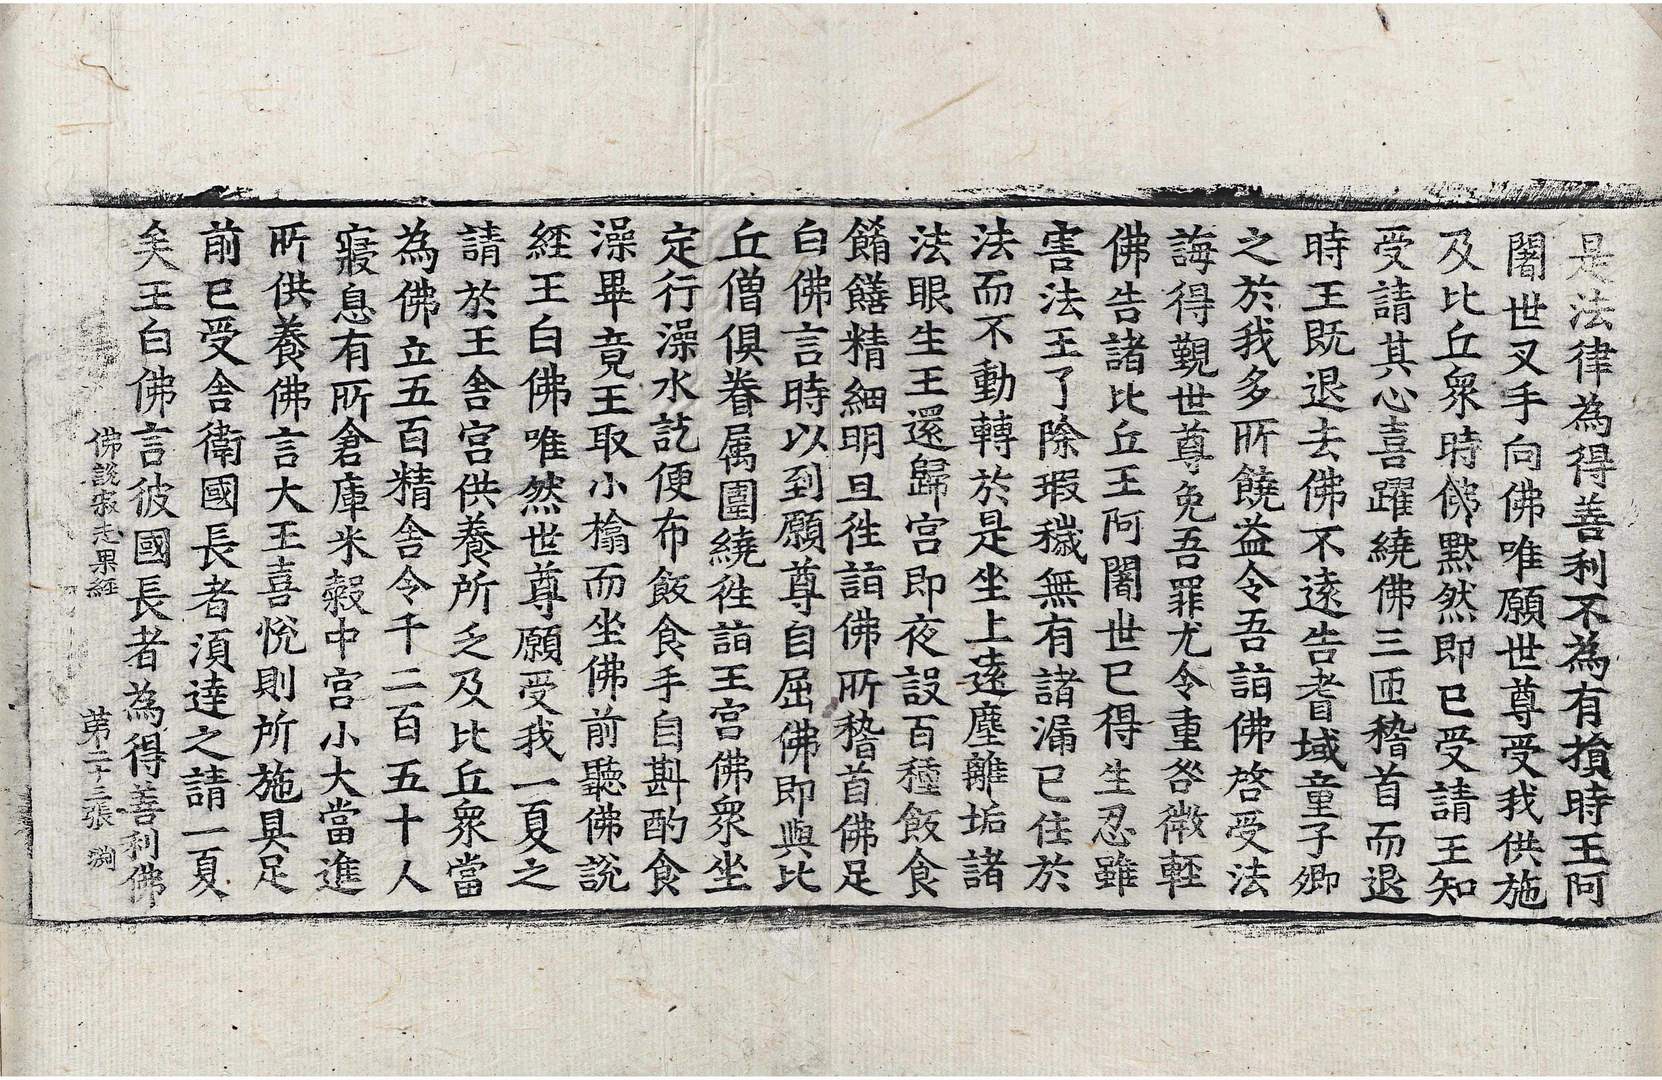 是法律為得善利不為有損時王阿
闍世叉手向佛唯願世尊受我供施
及比丘衆時佛默然即已受請王知
受請其心喜躍繞佛三匝稽首而退
時王既退去佛不遠告耆域童子卿
之於我多所饒益令吾詣佛啓受法
誨得覲世尊免吾罪尤令重咎微輕
佛告諸比丘王阿闍世已得生忍雖
害法王了除瑕穢無有諸漏已住於
法而不動轉於是坐上遠塵離垢諸
法眼生王還歸宮即夜設百種飯食
餚饍精細明旦往詣佛所稽首佛足
白佛言時以到願尊自屈佛即與比
丘僧俱眷属圍繞往詣王宮佛衆坐
定行澡水訖便布飯食手自斟酌食
澡畢竟王取小㯓而坐佛前聽佛說
經王白佛唯然世尊願受我一夏之
請於王舍宮供養所乏及比丘衆當
為佛立五百精舍令千二百五十人
寢息有所倉庫米糓中宮小大當進
所供養佛言大王喜悅則所施具足
前已受舍衛國長者須達之請一夏
矣王白佛言彼國長者為得善利佛
佛說寂志果經 第二十三張 渕